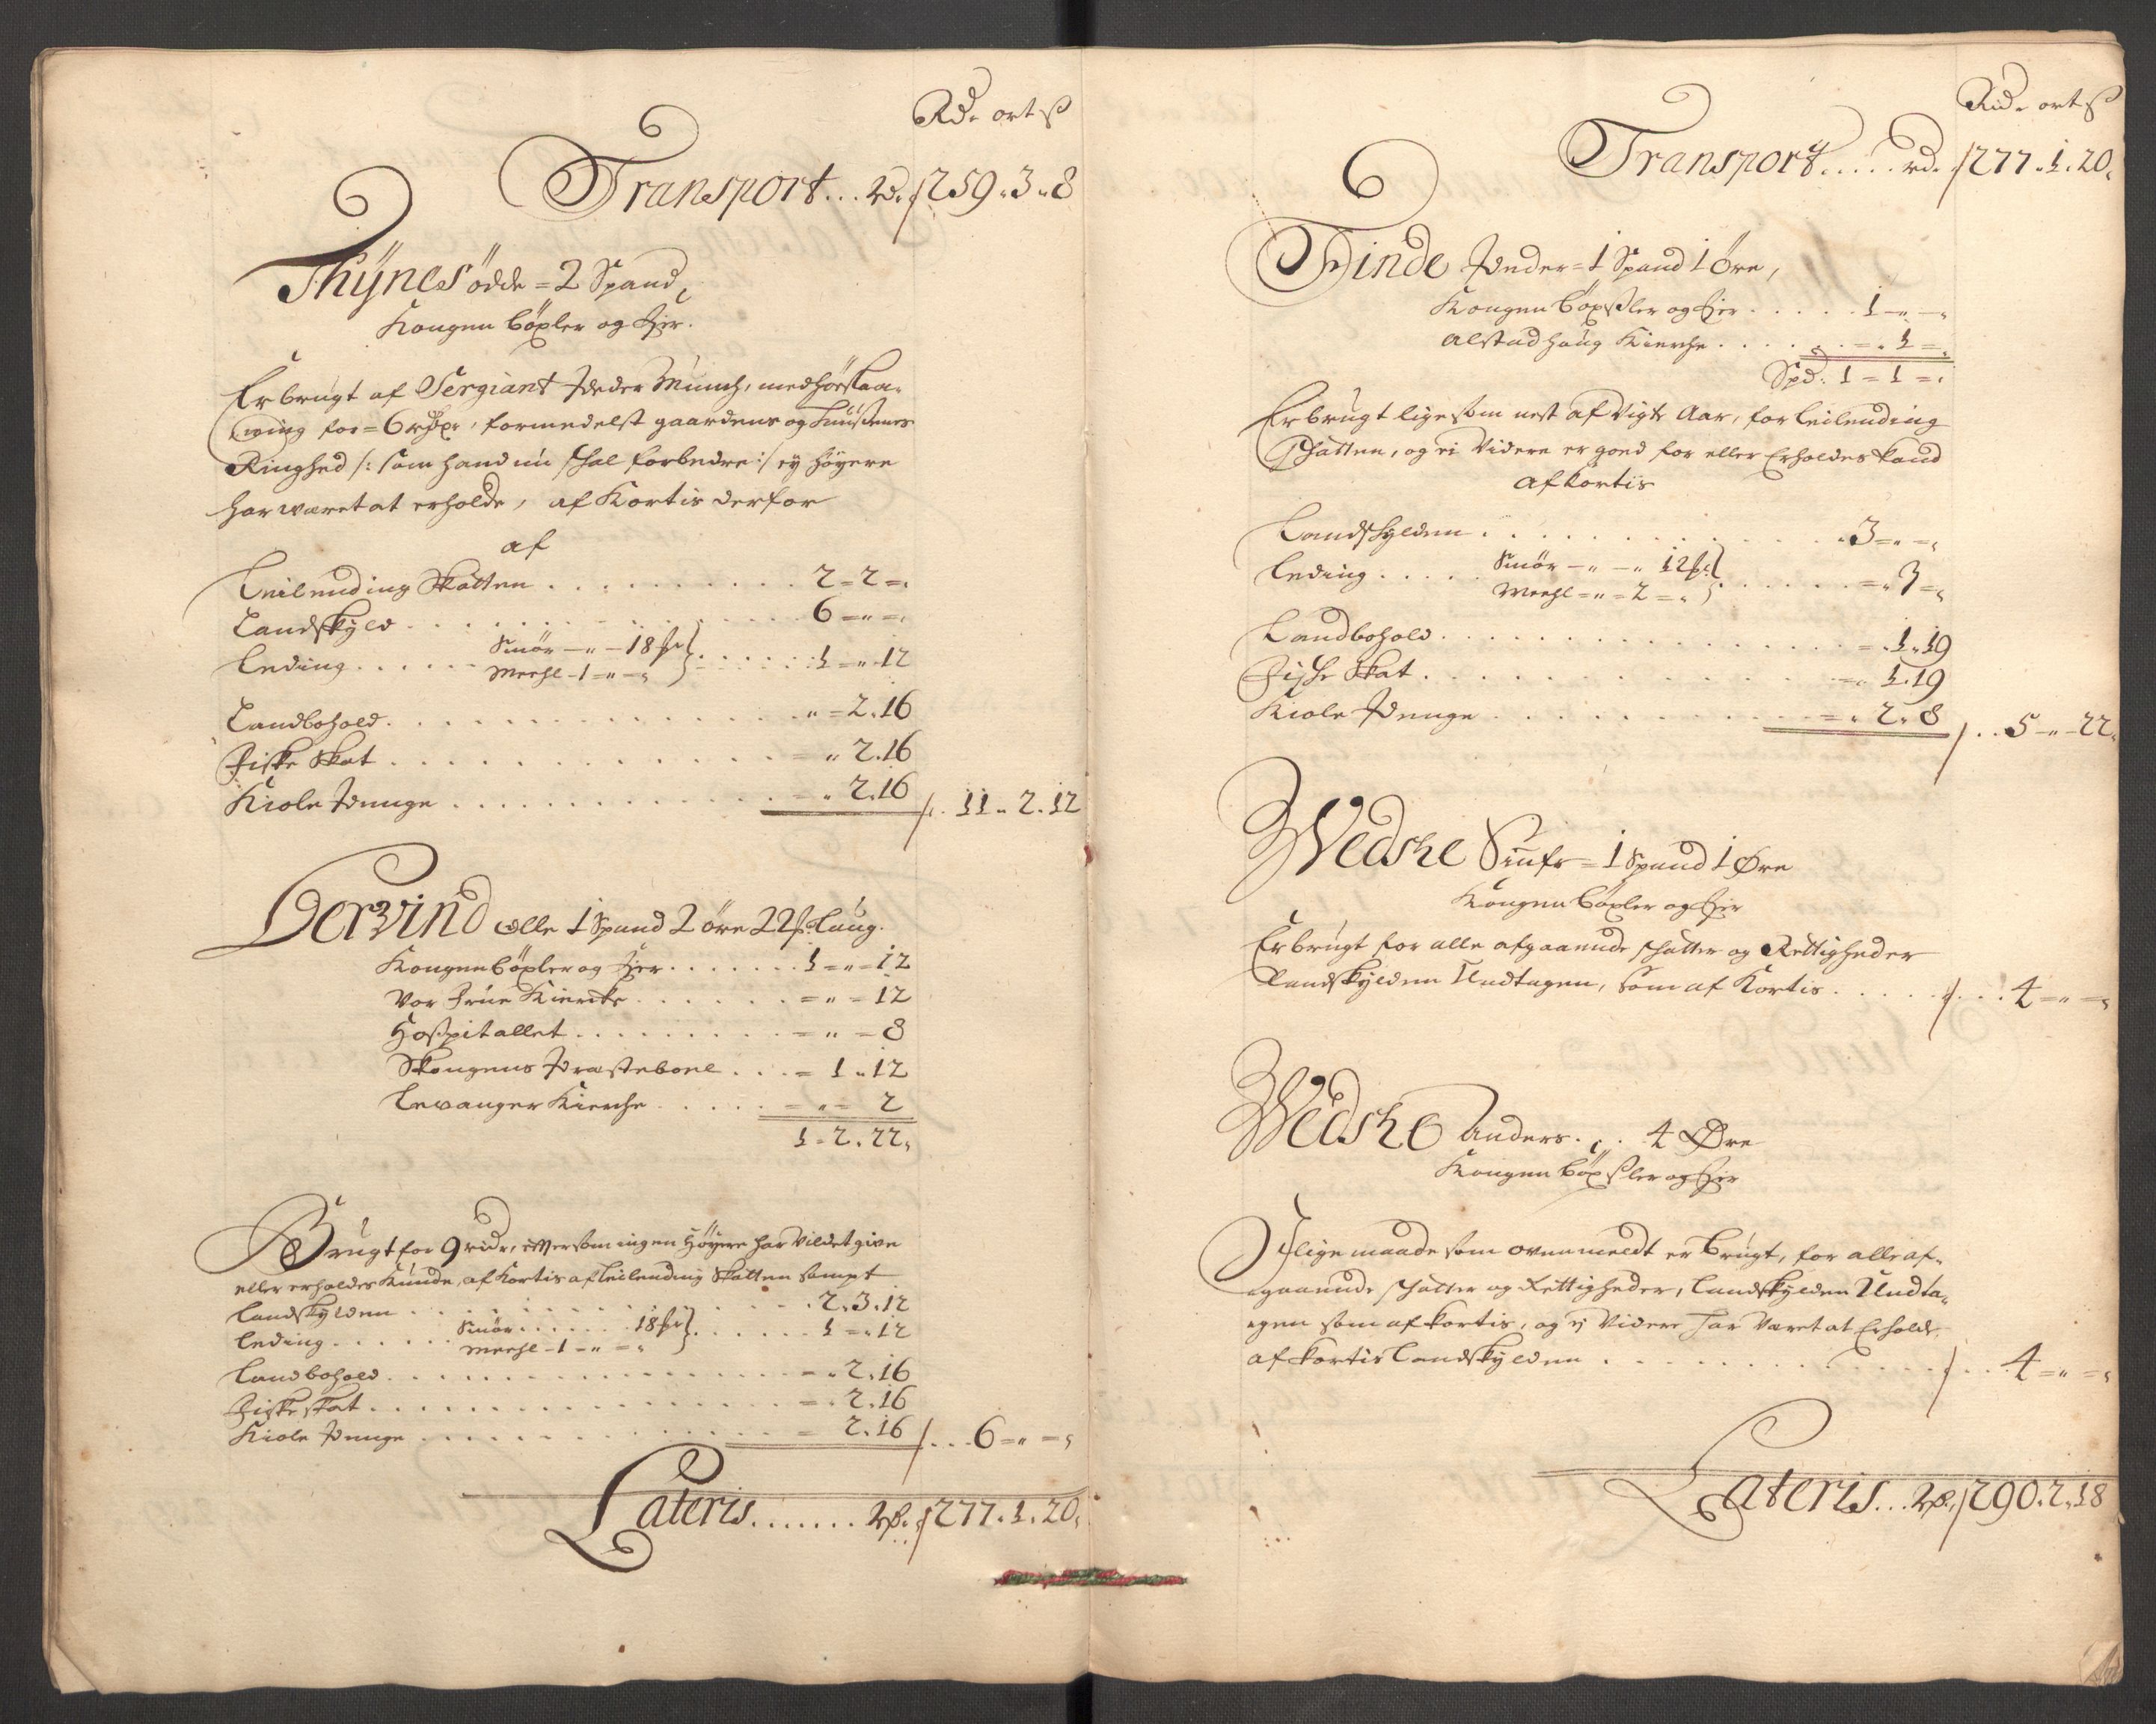 Rd. ort ß
Transport... rd. 259. 3. 8
Thÿnes ödde = 2 Spand,
Kongen böxler og Ejer.
Er brugt af Sergiant Peder Munch, med höeslaa-
ning for = 6 rixdr, formedelst gaardens og Huusenes
Ringhed /: som hand nu schal forbedre :/ ej höyere
har wæret at erholde, af Kortis derfor
af
Leilending Skatten . . . . . . 2 = 2 = „
Landskyld . . . . . . 6 = „ = „
Leding . . . . Smör — „ — 18 ß
Meehl - 1 = „ — „ } . . . . 1 = „ 12
Landbohold . . . . . . „ = 2. 16
Fiske Skat . . . . . . „ 2. 16
Kiole Penge . . . . . . „ 2. 16 /. 11. 2. 12
Lervind Olle 1 Spand 2 öre 22 ß: Laug.
Kongen böxler og Ejer . . . . . 1 = „ = 12
Vor Frue Kiercke . . . . . = „ = 12
Hospitallet . . . . . = „ = 8
Skongens Præsteboel . . . = 1 „ 12
Levanger Kierche . . . . = „ = 2
1 = 2. 22.
Brugt for 9 rixdr, eftersom ingen Höyere har Vildet give
eller erholdes Kunde, af Kortis af Leilending Skatten sampt
Landskylden . . . . . . 2. 3. 12
Leding . . . . Smör . . . . 18 ß
Meehl - 1 - „ = „ } . . . . 1 = „ 12
Landbohold . . . . . . = „ 2. 16
Fiske skat . . . . . . = „ 2. 16
Kiole Penge . . . . . . = 2. 16 /. . . 6 = „ = „
Lateris . . . . . . . Rd. 277. 1. 20.
Rd. ort ß
Transport . . . . . rd. 277. 1. 20.
Tinde Peder = 1 Spand 1 Öre,
Kongen böxsler og Ejer . . . . . 1 — „ — „
Alstadhaug Kierche . . . . = „ 1 = „
Spd: 1 = 1 = „
Er brugt lige som nest afvigte Aar, for Leilending
Schatten, og ei Videre er goed for eller Erholdes kand
afkortis
Landschylden . . . . . . 3 = „ = „
Leding . . . . Smör — „ — „ 12 ß
Meehl = „ = 2 = „ } . . . . = „ 3 = „
Landbohold . . . . . . = „ 1. 19
Fische Skat . . . . . . = „ 1. 19
Kiole Penge . . . . . . = „ 2. 8 /. . 5 — „ — 22.
Wedske Siufr = 1 Spand 1 Öre
Kongen böxler og Ejer
Er brugt for alle afgaaende schatter og Rettigheder
Landskylden Undtagen, som af Kortis . . . . . /. . . 4 = „ = „
Wedske Anders . . . 4 Öre
Kongen böxsler og Ejer
I lige maade som ovenmeldt er brugt, for alle af-
gaaende schatter og Rettigheder, Landskylden Undta-
gen som afkortis, og ej Videre har Været at Erholde.
afkortis Landskylden . . . . . . /. . . 4 = „ = „
Lateris . . . Rd. 290. 2. 18